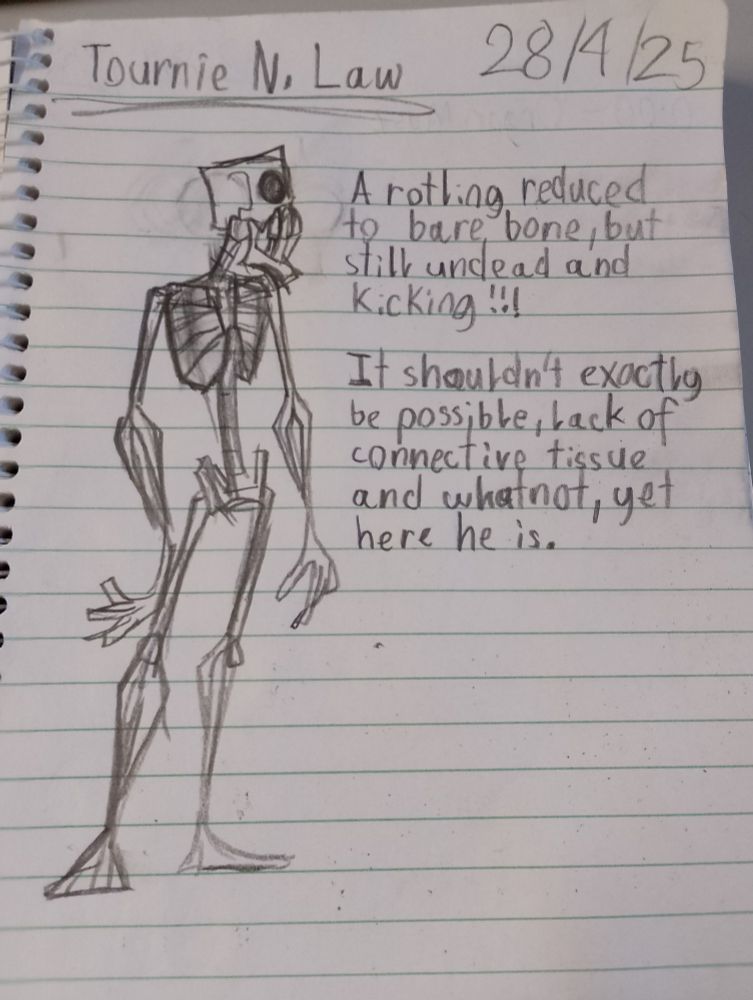 Tournie N. Law
28/4/25
A rotling reduced
to bare bone, but
still undead and
kicking!!!
It shouldn't exactly
be possible, lack of
connective tissue
and whatnot, yet
here he is.